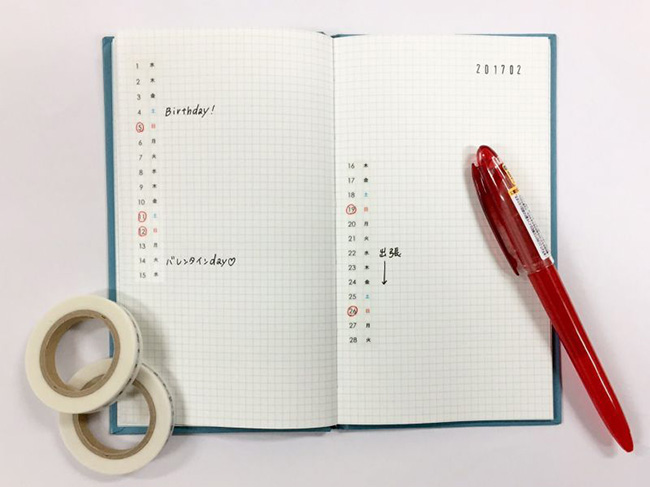 1 水
2 木
3 金
4 土 Birthday!
5 日
6 月
7 火
8 水
9 木
10 金
11 土
12 日
13 月
14 火 バレンタインday♡
15 水
201702
16 木
17 金
18 土
19 日
20 月
21 火
22 水 出張
23 木
24 金
25 土
26 日
27 月
28 火